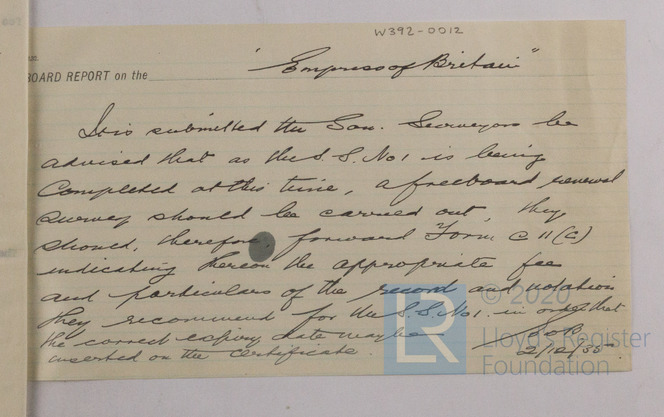 W392-0012
BOARD REPORT on the "Empress of Britain"
It is submitted the Gov. Surveyors be
advised that as the S.S. No 1 is being
Completed at this time, a freeboard renewal
survey should be carried out, they
should, therefore, forward Form C 11 (C)
indicating thereon the appropriate fee
and particulars of the record and notation
they recommend for the S.S. No 1. in order that
the correct expiry date may be
inserted on the certificate.
2/12/55.
© 2020
LR
Lloyd's Register
Foundation